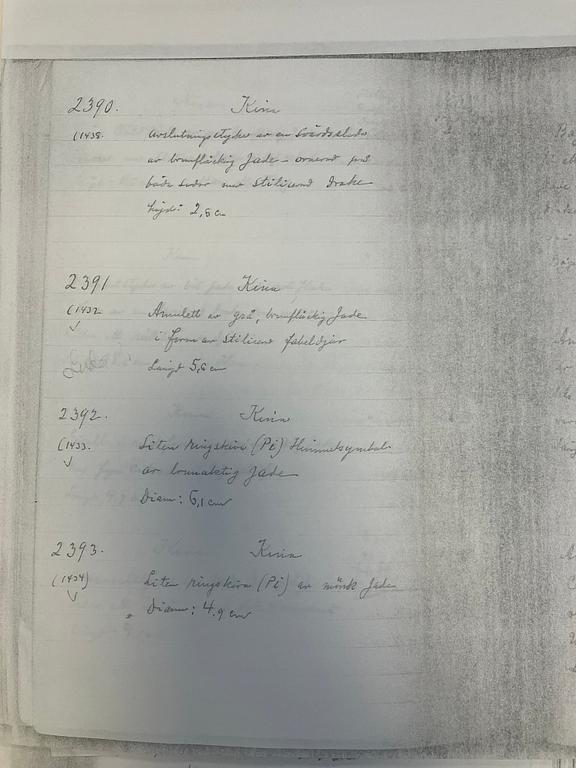 2390. Kina
(1438. Avslutningsstycke av en Svärdsskida
av brunfläckig Jade - ornerad på
båda sidor med stiliserad Drake
höjd: 2,6 cm
2391 Kina
(1432 Amulett av grå, brunfläckig Jade
i form av stiliserad fabeldjur
Längd 5,6 cm
2392. Kina
(1433. Liten ringskiva (Pi) Himmelsymbol
av brunaktig Jade
Diam: 6,1 cm
2393. Kina
(1434) Liten ringskiva (Pi) av mörk Jade
Diam: 4.9 cm